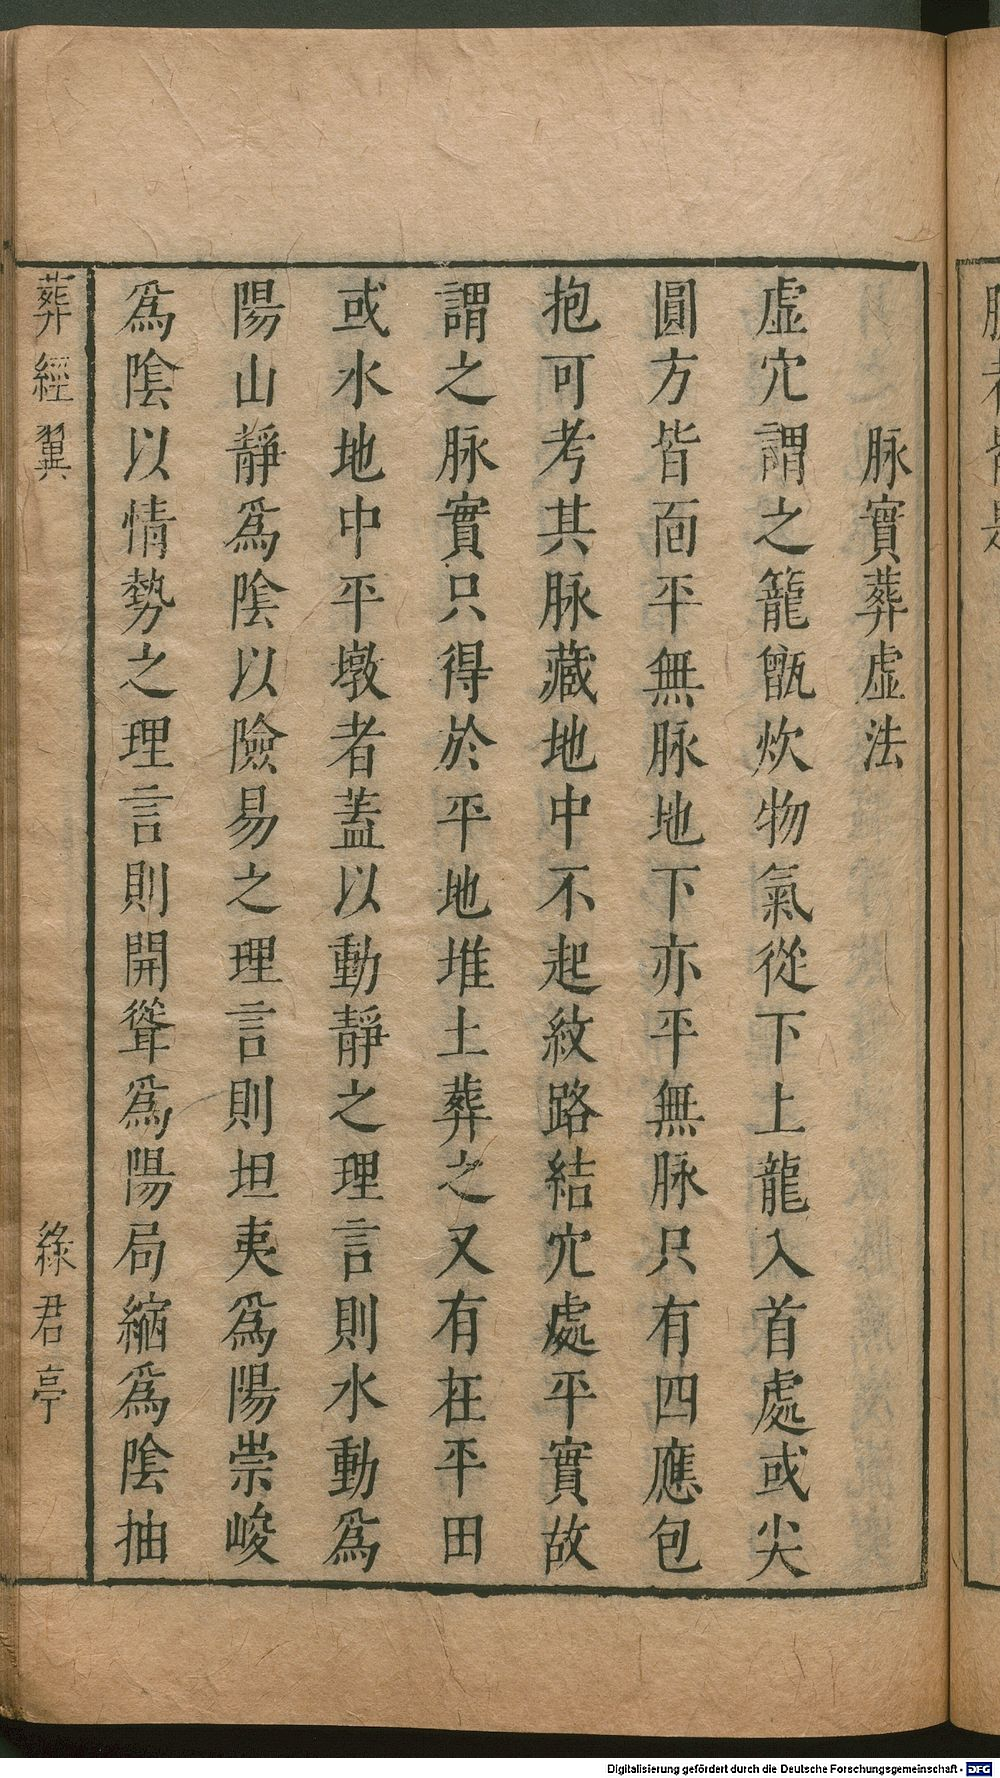 脉實葬虛法
虛穴謂之籠甑炊物氣從下上龍入首處或尖
圓方皆面平無脉地下亦平無脉只有四應包
抱可考其脉藏地中不起紋路結穴處平實故
謂之脉實只得於平地堆土葬之又有在平田
或水地中平墩者蓋以動靜之理言則水動為
陽山靜為陰以險易之理言則坦夷為陽崇峻
為陰以情勢之理言則開聳為陽局縮為陰抽
葬經翼
綠君亭
Digitalisierung gefördert durch die Deutsche Forschungsgemeinschaft - DFG